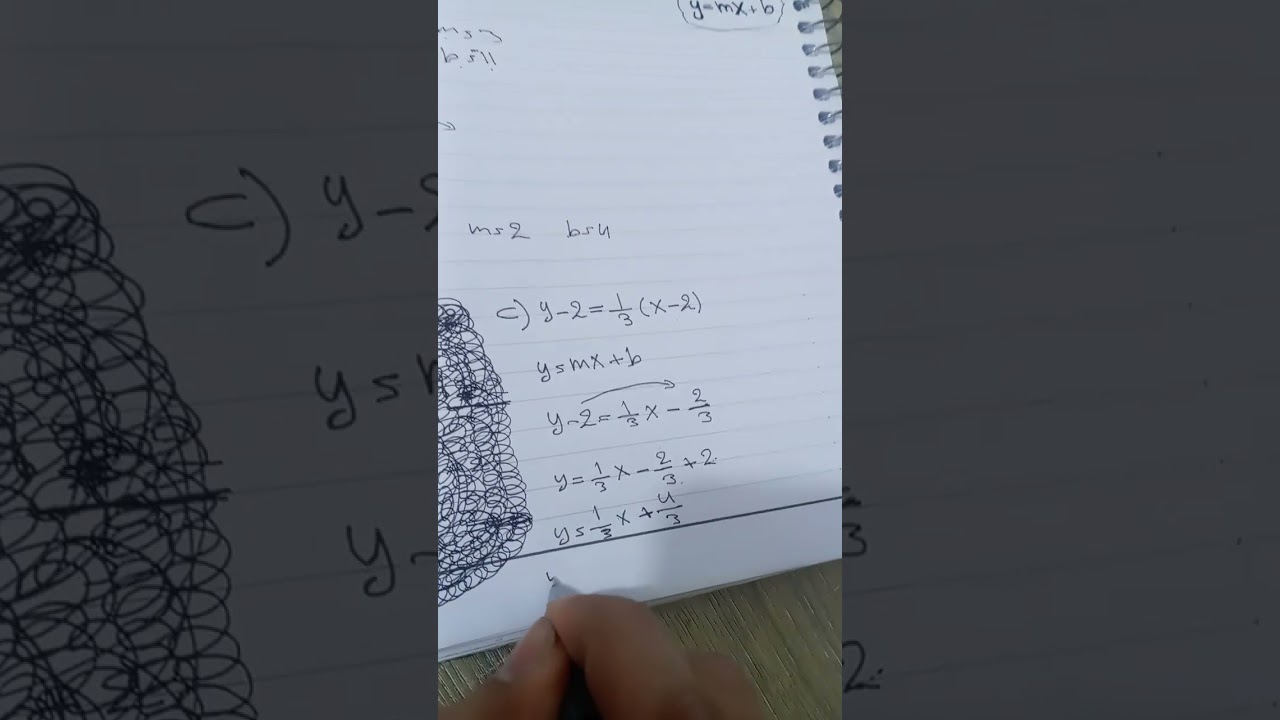 y=mx+b
b=11
m=2 b=4
c) y-2=1/3(x-2)
y=mx+b
y-2=1/3x-2/3
y=1/3x-2/3+2
y=1/3x+4/3